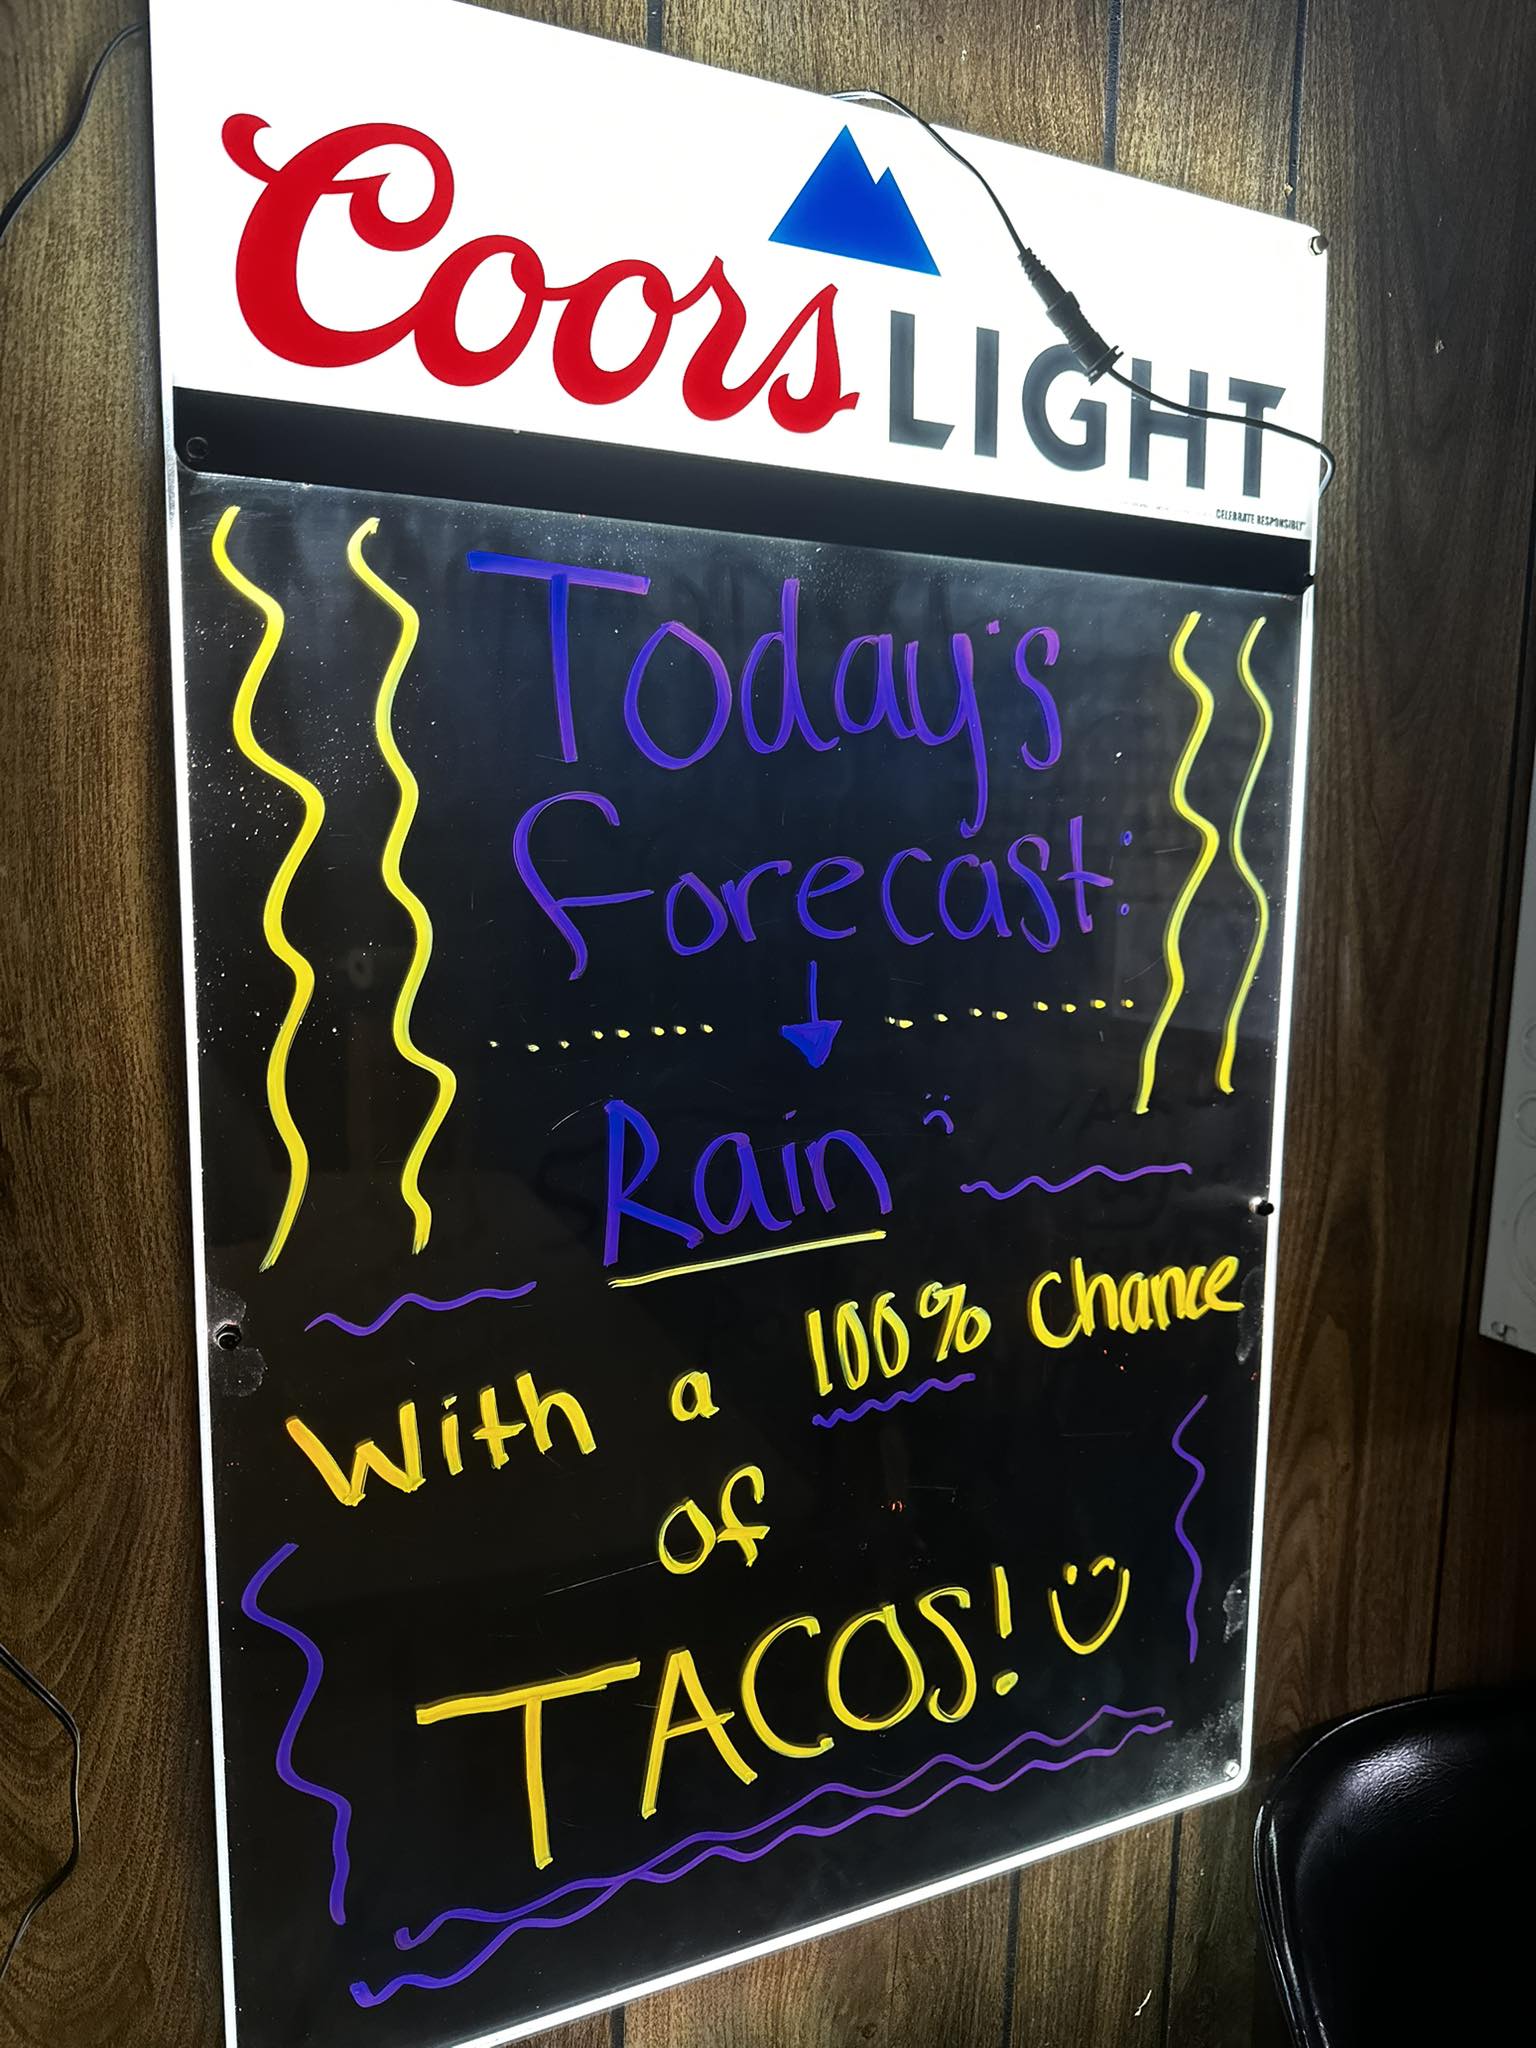 Coors LIGHT
CELEBRATE RESPONSIBLY
Today's
Forecast:
Rain
With a 100% Chance
of
TACOS!